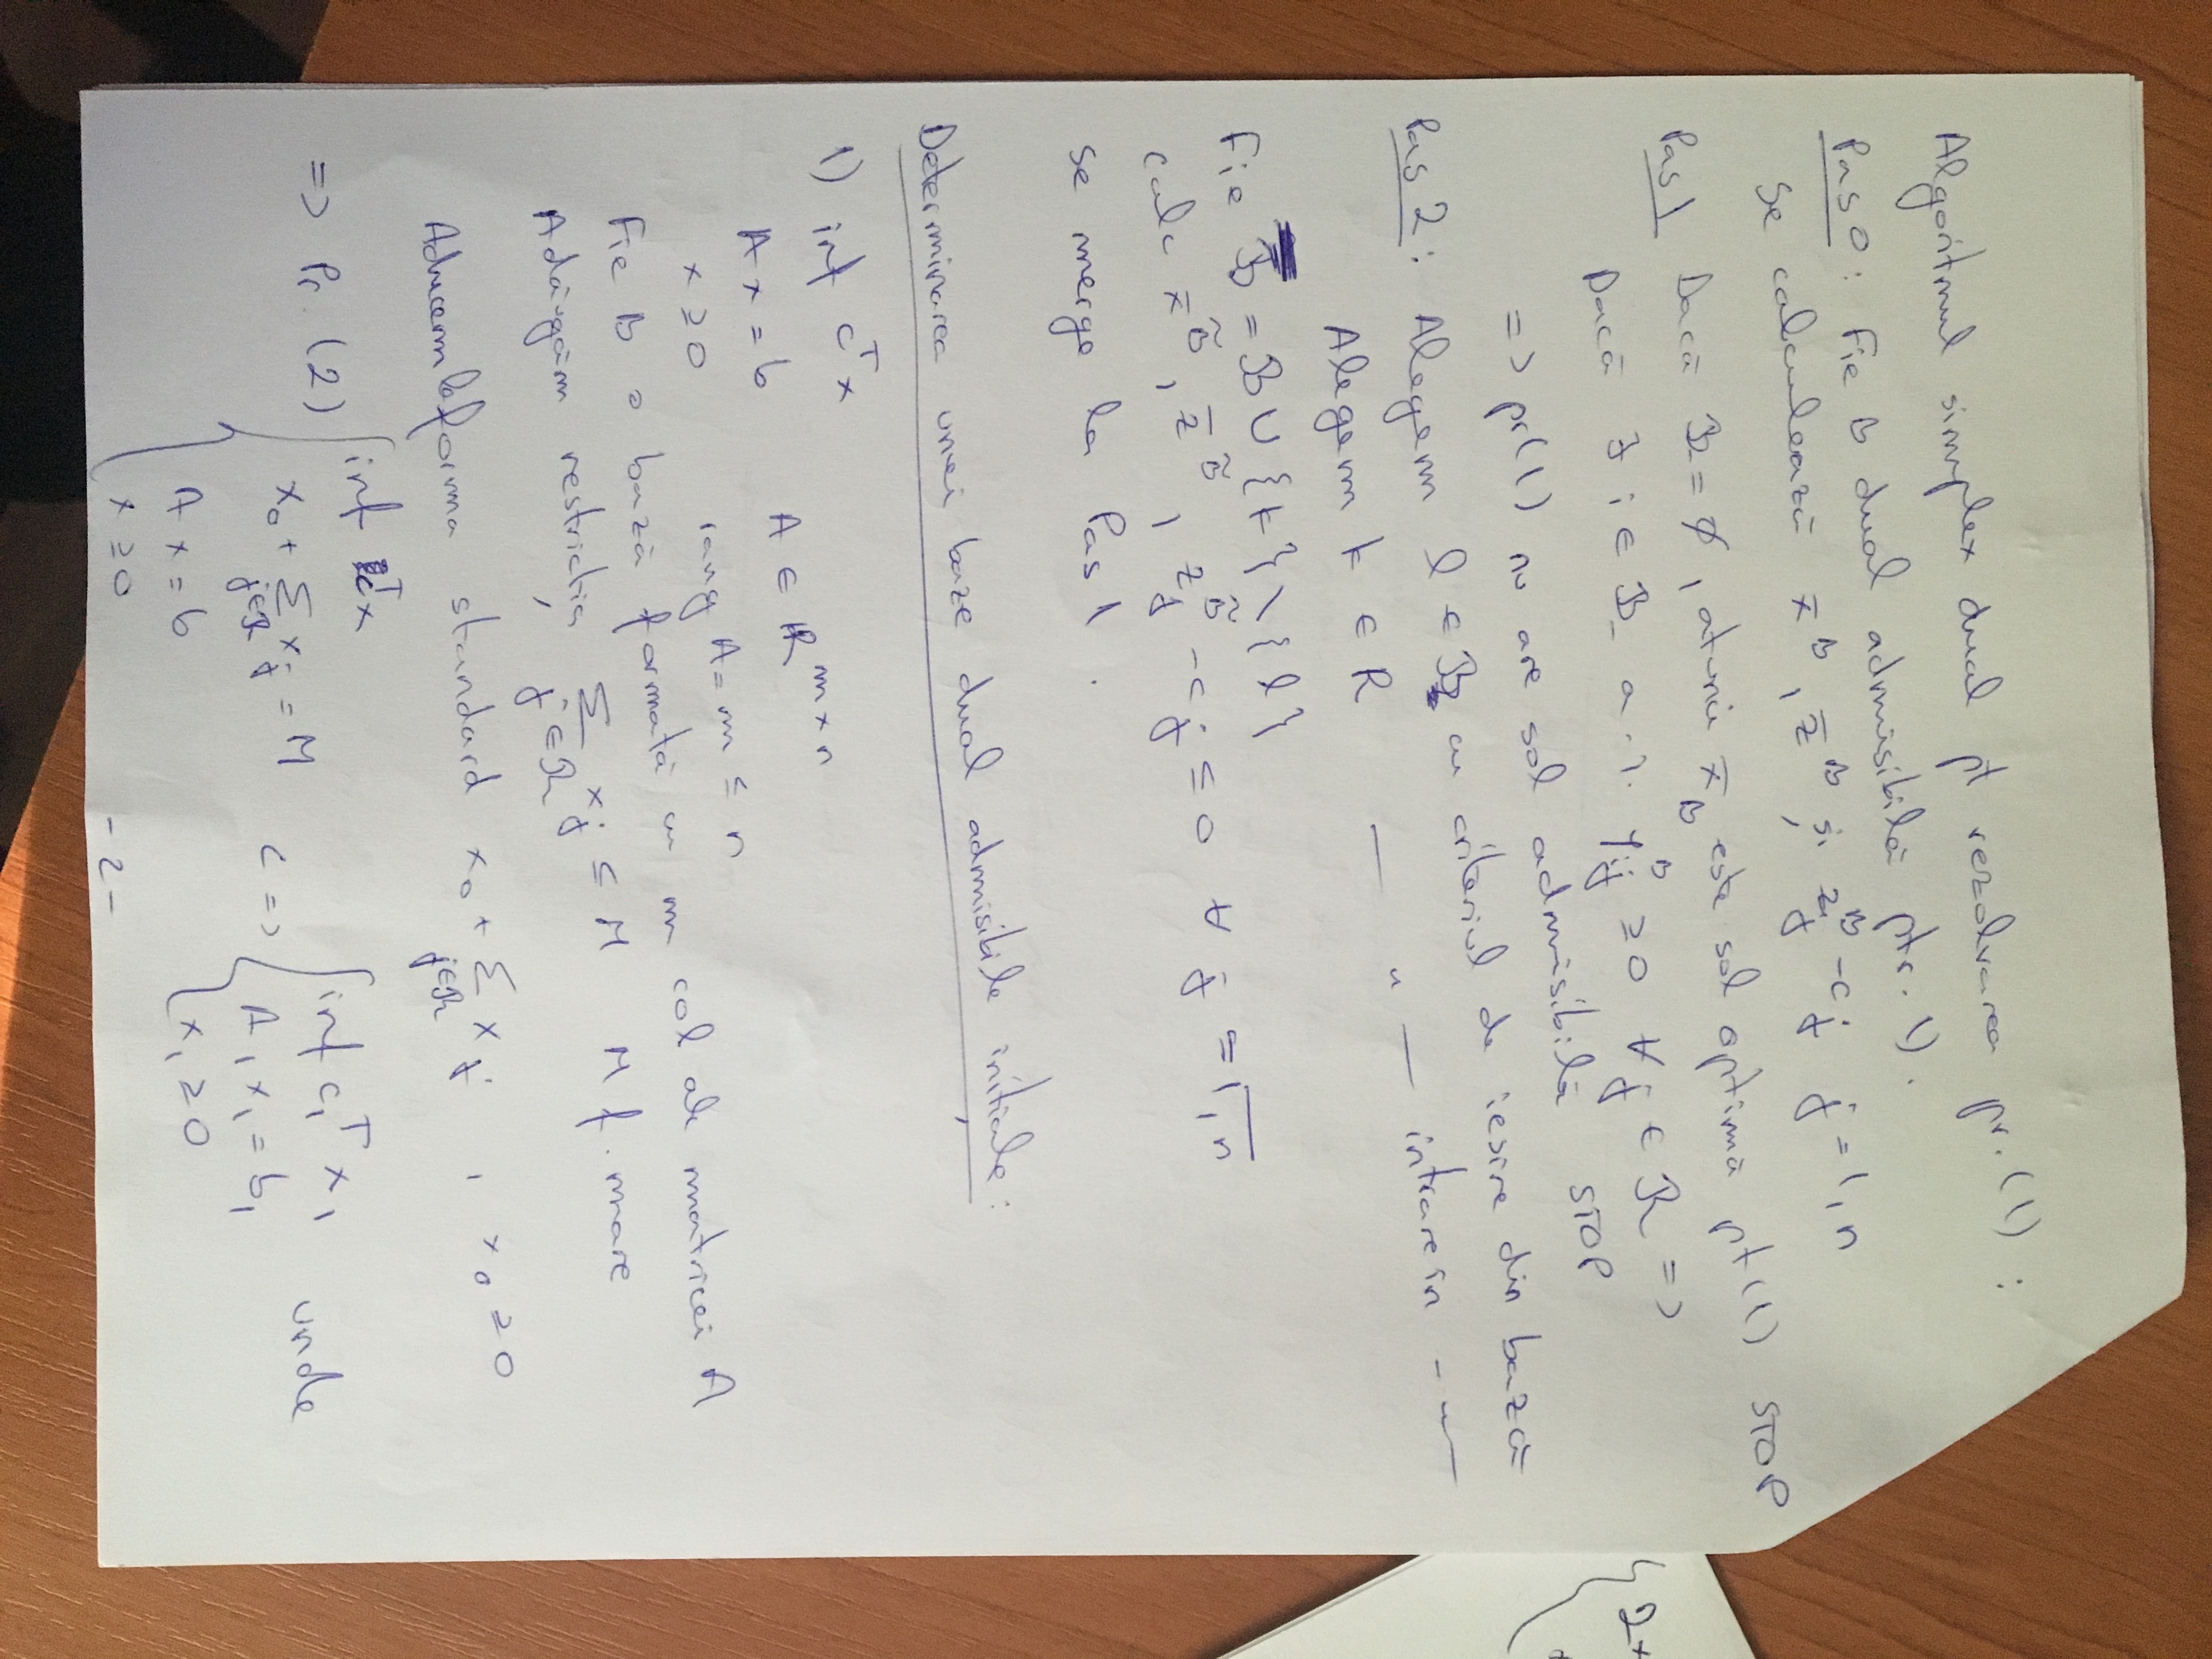 Algoritmul simplex dual pt rezolvarea pr. (1) :
Pas 0 : Fie B dual admisibilă ptr. 1).
Se calculează x̄ᴮ , z̄ᴮ și zⱼᴮ - cⱼ j = 1, n
Pas 1 Dacă ℬ₋ = ∅ , atunci x̄ᴮ este sol optimă pt (1) STOP
Dacă ∃ i ∈ ℬ₋ a.î. yᵢⱼᴮ ≥ 0 ∀ j ∈ ℛ =>
=> pr (1) nu are sol admisibilă STOP
Pas 2 : Alegem l ∈ ℬ₋ cu criteriul de ieșire din bază
Alegem k ∈ R — " — intrare în - " —
Fie ℬ̃ = ℬ ∪ {k} \ {l}
calc x̄ᴮ̃ , z̄ᴮ̃ , zⱼᴮ̃ - cⱼ ≤ 0 ∀ j = 1, n
se merge la Pas 1 .
Determinarea unei baze dual admisibile inițiale :
1) inf cᵀ x A ∈ ℝᵐˣⁿ
A x = b rang A = m ≤ n
x ≥ 0
Fie B o bază formată cu m col ale matricei A
Adăugăm restricția Σ_{j∈ℛ} xⱼ ≤ M M f. mare
Aducem la forma standard x₀ + Σ_{j∈ℛ} xⱼ , x₀ ≥ 0
=> Pr. (2) { inf cᵀx
x₀ + Σ_{j∈ℛ} xⱼ = M
A x = b
x ≥ 0
<=> { inf c₁ᵀ x₁ unde
A₁ x₁ = b₁
x₁ ≥ 0
- 2 -
{ 2x